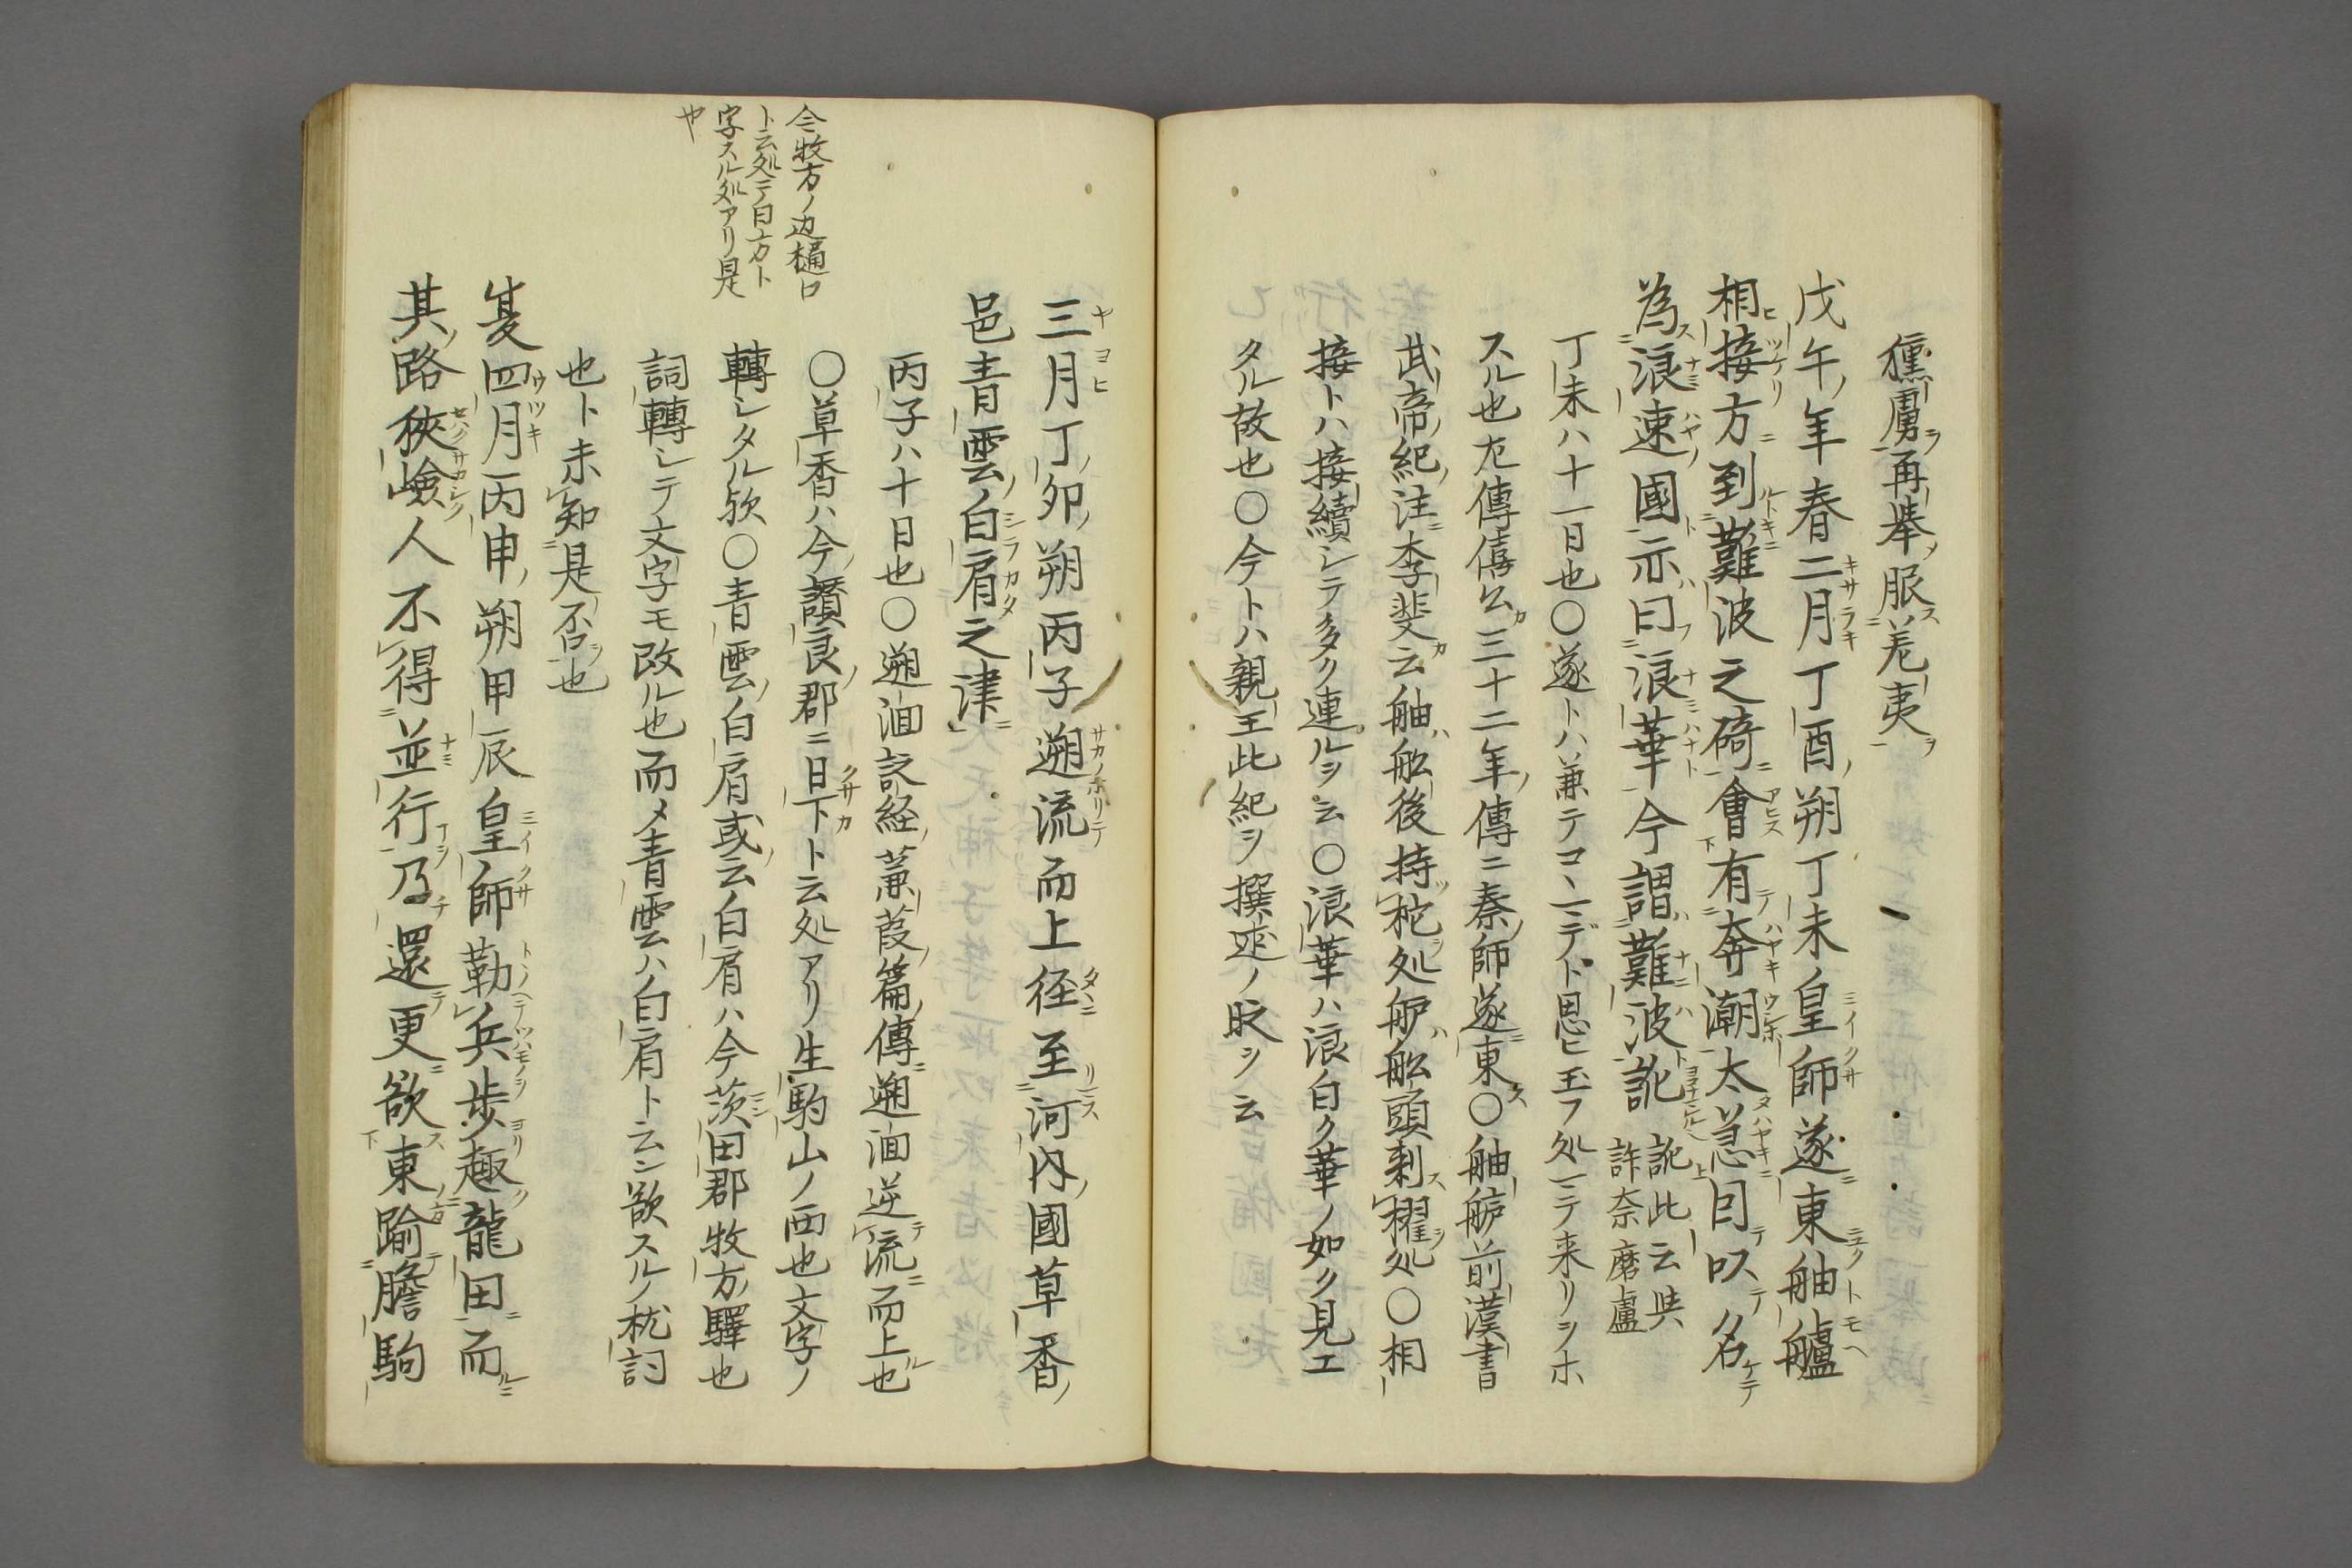 獯虜再挙服羌夷
戊午年春二月丁酉朔丁未皇師遂東舳艫
相接方到難波之碕會有奔潮太急因以名
為浪速國亦曰浪華今謂難波訛訛此云與許奈磨盧
丁未ハ十一日也〇遂トハ兼テコヽニデト思ヒ玉フ処ニテ来リヲホ
スル也左傳僖公三十二年傳ニ秦師遂東〇舳艫前漢書
武帝紀注李斐云舳舩後持柁処舮舩頭刺櫂処〇相
接トハ接續シテ多ク連ルヲ云〇浪華ハ浪白ク華ノ如ク見エ
タル故也〇今トハ親王此紀ヲ撰述ノ時ヲ云
三月丁卯朔丙子遡流而上径至河内國草香
邑青雲白肩之津
丙子ハ十日也〇遡洄詩経蒹葭篇傳遡洄逆流而上也
〇草香ハ今讃良郡ニ日下ト云処アリ生駒山ノ西也文字ノ
轉シタル欤〇青雲白肩或云白肩ハ今茨田郡牧方驛也
詞轉シテ文字モ改ル也而メ青雲ハ白肩ト云ン欲スルノ枕詞
也ト未知是否也
夏四月丙申朔甲辰皇師勒兵歩趣龍田而
其路狹嶮人不得並行乃還更欲東踰膽駒
今牧方ノ辺樋口
ト云処ニテ日方ト
字スル処アリ是
や